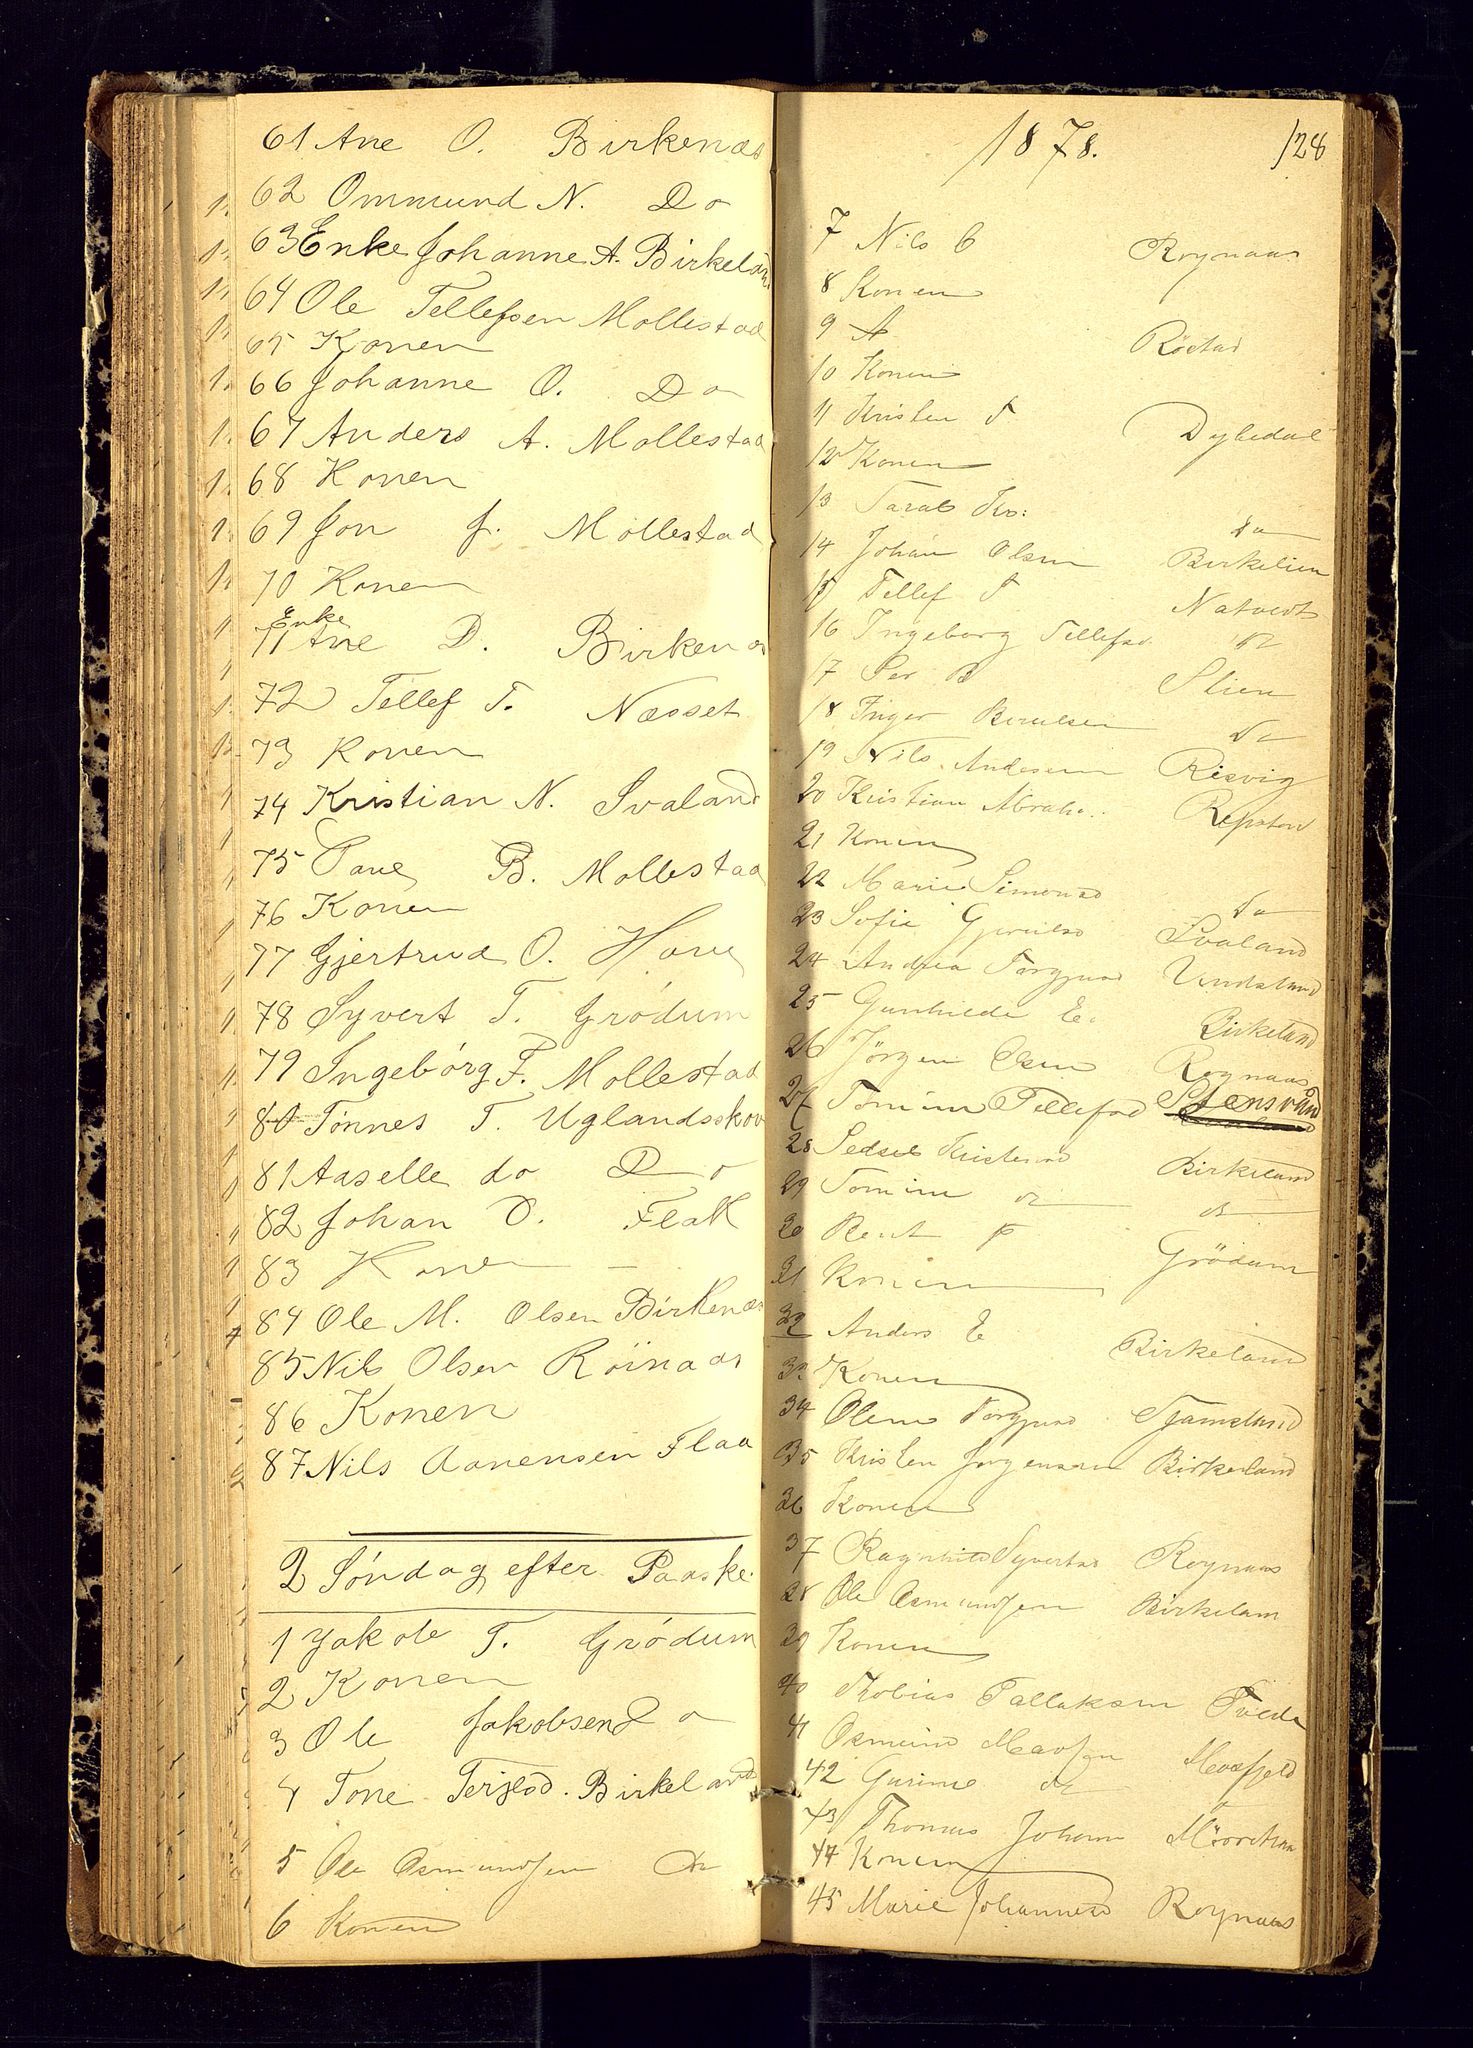 61 Ane O. Birkenæs
62 Ommund N. Do
63 Enke Johanne A. Birkeland
64 Ole Tellefsen Mollestad
65 Konen
66 Johanne O. Do
67 Anders A. Mollestad
68 Konen
69 Jon J. Mollestad
70 Konen
Enke
71 Ane D. Birkenæs
72 Tellef T. Næsset
73 Konen
74 Kristian N. Svaland
75 B. Mollestad
76 Konen
77 Gjertrud O. Hove
78 Syvert T. Grödum
79 Ingebórg F. Mollestad
80 Tønnes T. Uglandsskov
81 Aaselle do Do
82 Johan O. Flak
83 Konen
84 Ole M. Olsen Birkenæs
85 Nils Olsen Röinaas
86 Konen
87 Nils Aanensen Flaa
2 Søndag efter Paaske.
1 Jakob T. Grödum
2 Konen
3 Ole Jakobsen Do
4 Tone Terjesd. Birkeland
5 Ole Osmundsen do
6 Konen
1878. 128
7 Nils C Roynaas
8 Konen
9 A Röstad
10 Konen
11 Kristen T Dyhedal
12 Konen
13 Taral Kr: do
14 Johan Olsen Birkelien
15 Tellef T Natvedt
16 Ingeborg Tellefsd do
17 Per B Stien
18 Inger do
19 Nils Andersen Risvig
20 Kristian Abrah. Repstad
21 Konen
22 Marie Simonsd do
23 Sofie Svaland
24 Andrea Torgjusd
25 Gunhilde E. Birkeland
26 Jörgen Olsen Roynaas
27 Tomine Tellefsd Stensvand
28 Sedsel Kristensd Birkeland
29 Tomine do do
30 Bent P Grödum
31 Konen
32 Anders E Birkeland
33 Konen
34 Olene Torgjusd Tjamslund
35 Kristen Jorgensen Birkeland
36 Konen
37 Ragnhild Syvertsd Roynaas
38 Ole Osmundsen Birkelan
39 Konen
40 Tobias Tallaksen Tveide
41 Osmund
42 Gurine do
43 Thomas Johan
44 Konen
45 Marie Johannesd Roynaas